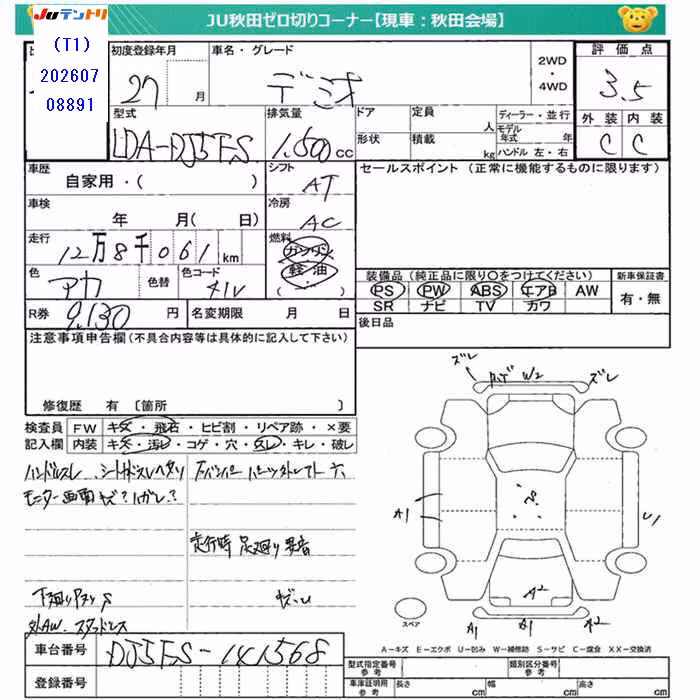 JUテントリ
JU秋田ゼロ切りコーナー【現車：秋田会場】
(T1)
202607
08891
初度登録年月 27 月
車名・グレード デミオ
2WD・4WD
評価点 3.5
型式 LDA-DJ5FS
排気量 1,500 CC
ドア
定員 人
形状
積載 kg
ディーラー・並行
モデル年式 年
ハンドル 左・右
外装 内装
C C
車歴 自家用・( )
シフト AT
セールスポイント (正常に機能するものに限ります)
車検 年 月( 日)
冷房 AC
走行 12万8千061 km
燃料 ガソリン 軽・油
色 アカ 色替
色コード 41V
装備品（純正品に限り○をつけてください）
新車保証書
PS PW ABS エアB AW
SR ナビ TV カワ
有・無
R券 9,130 円
名変期限 月 日
後日品
注意事項申告欄(不具合内容等は具体的に記入して下さい)
修復歴 有 〔箇所 〕
検査員記入欄
FW キズ・飛石・ヒビ割・リペア跡・×要
内装 キズ・汚レ・コゲ・穴・スレ・キレ・破レ
ハンドルスレ、シートスレヘタリ
モニター画面キズ？ハガレ？
走行時 足廻り異音
下廻りサビS
社外AW、スタッドレス
ズレ W2 ズレ
A1 U1
A2
A1 B1 A2
スペア
A－キズ E－エクボ U－凹み W－補修跡 S－サビ C－腐食 XX－交換済
車台番号 DJ5FS-141568
登録番号
型式指定番号 参考
類別区分番号 参考
車庫証明用 参考 長さ cm 幅 cm 高さ cm